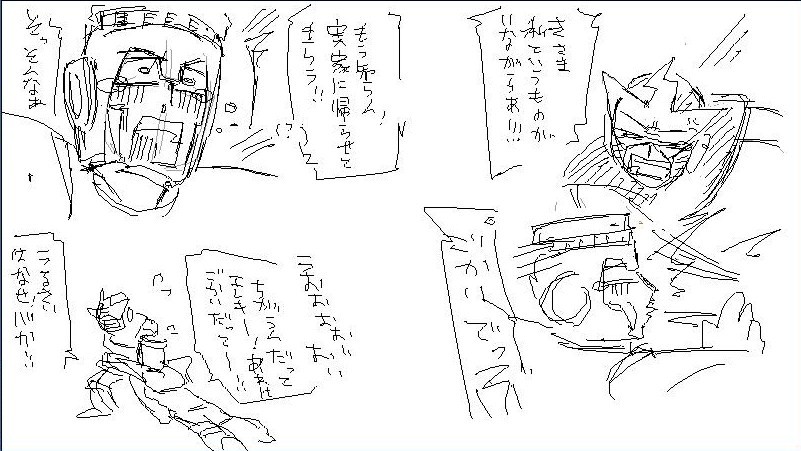 きさま
私というものが
いながらぁ!!!
ごかいでっ
もう知らん!
実家に帰らせて
もらう!!
そっそんなぁ
ちがうんだって
モンキー!あれは
ごかいだってー!!
うるさい
はなせ!バカ!!